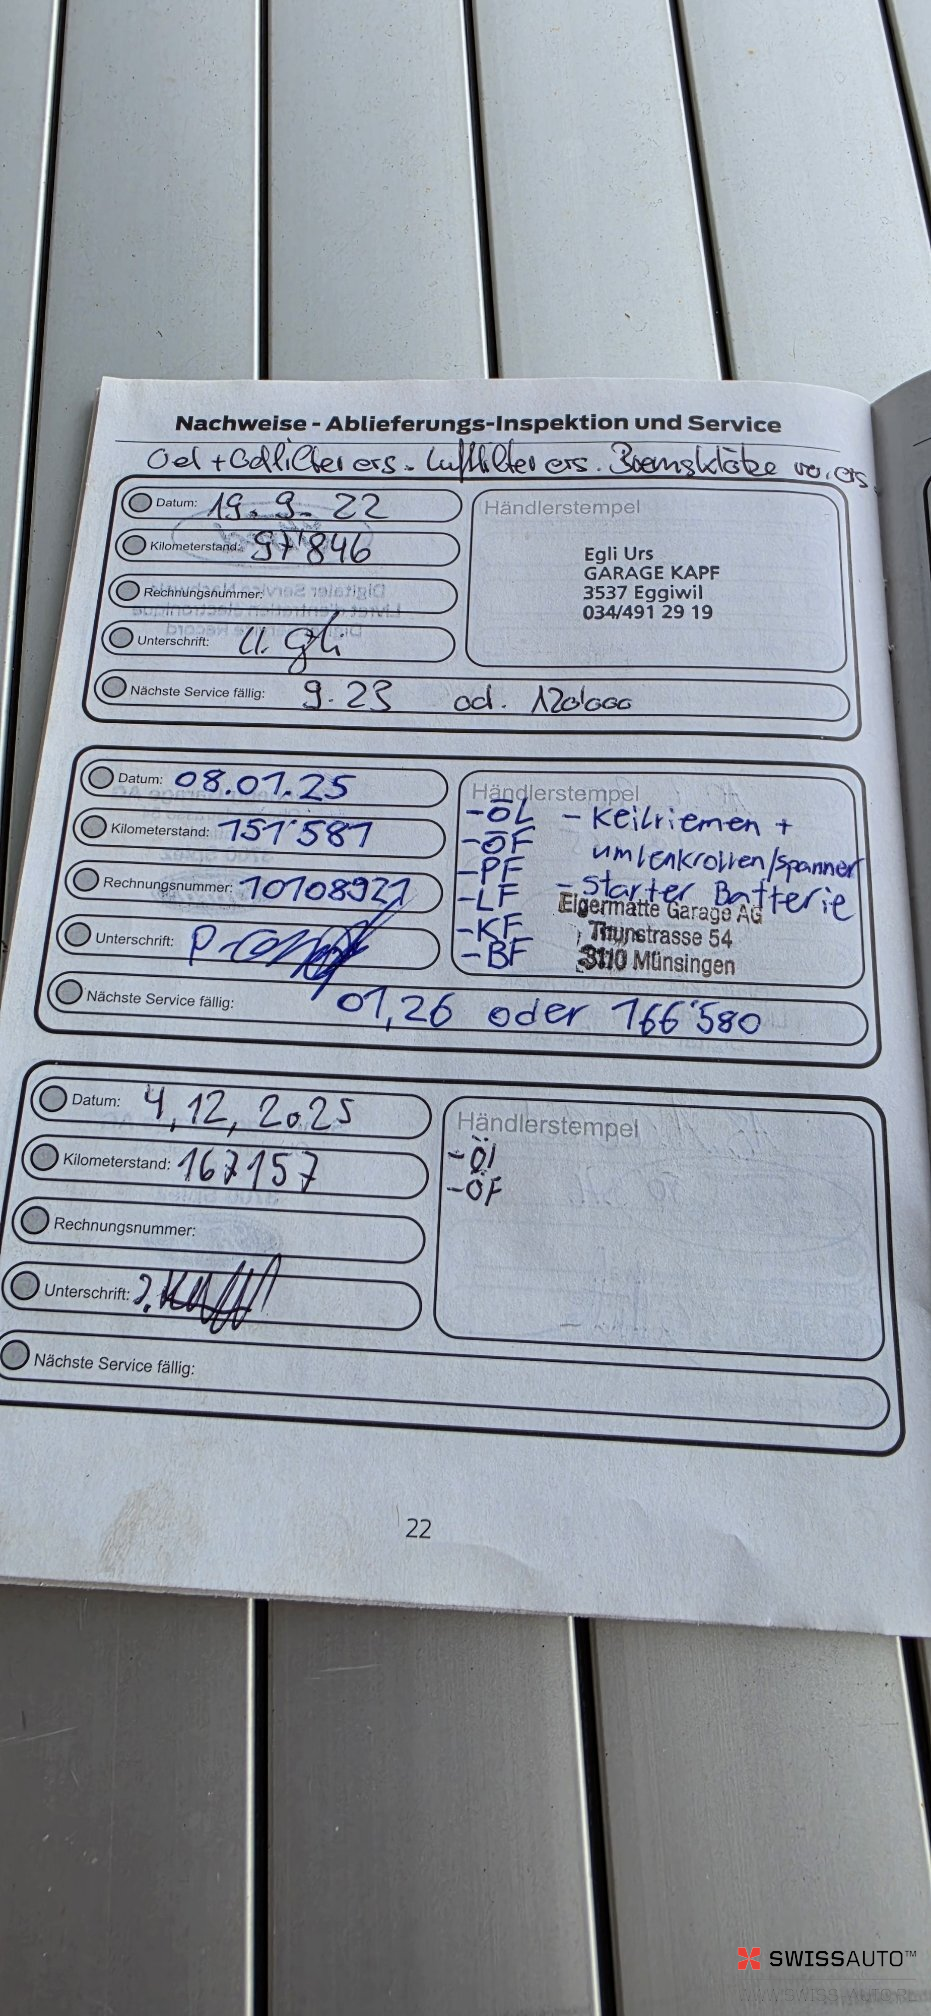 Nachweise - Ablieferungs-Inspektion und Service
Oel + Oelfilter ers. Luftfilter ers. Bremsklötze vo. ers.
Datum: 19.9.22
Kilometerstand: 97'846
Rechnungsnummer:
Unterschrift:
Nächste Service fällig: 9.23 od. 120'000
Händlerstempel
Egli Urs
GARAGE KAPF
3537 Eggiwil
034/491 29 19
Datum: 08.01.25
Kilometerstand: 151'581
Rechnungsnummer: 10108921
Unterschrift:
Nächste Service fällig: 01,26 oder 166'580
Händlerstempel
-ÖL - Keilriemen +
-ÖF umlenkrollen/spanner
-PF
-LF - starter Batterie
-KF
-BF
Eigermatte Garage AG
Thunstrasse 54
3110 Münsingen
Datum: 4,12,2025
Kilometerstand: 167157
Rechnungsnummer:
Unterschrift:
Nächste Service fällig:
Händlerstempel
-Öl
-ÖF
22
SWISSAUTO™